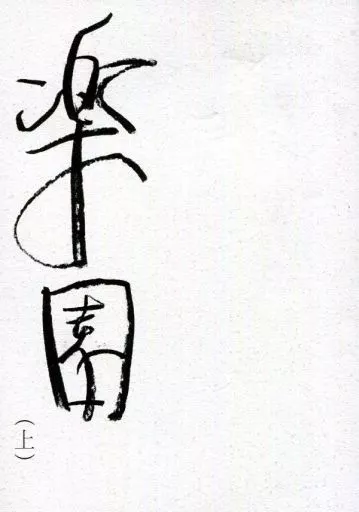 楽園
（上）